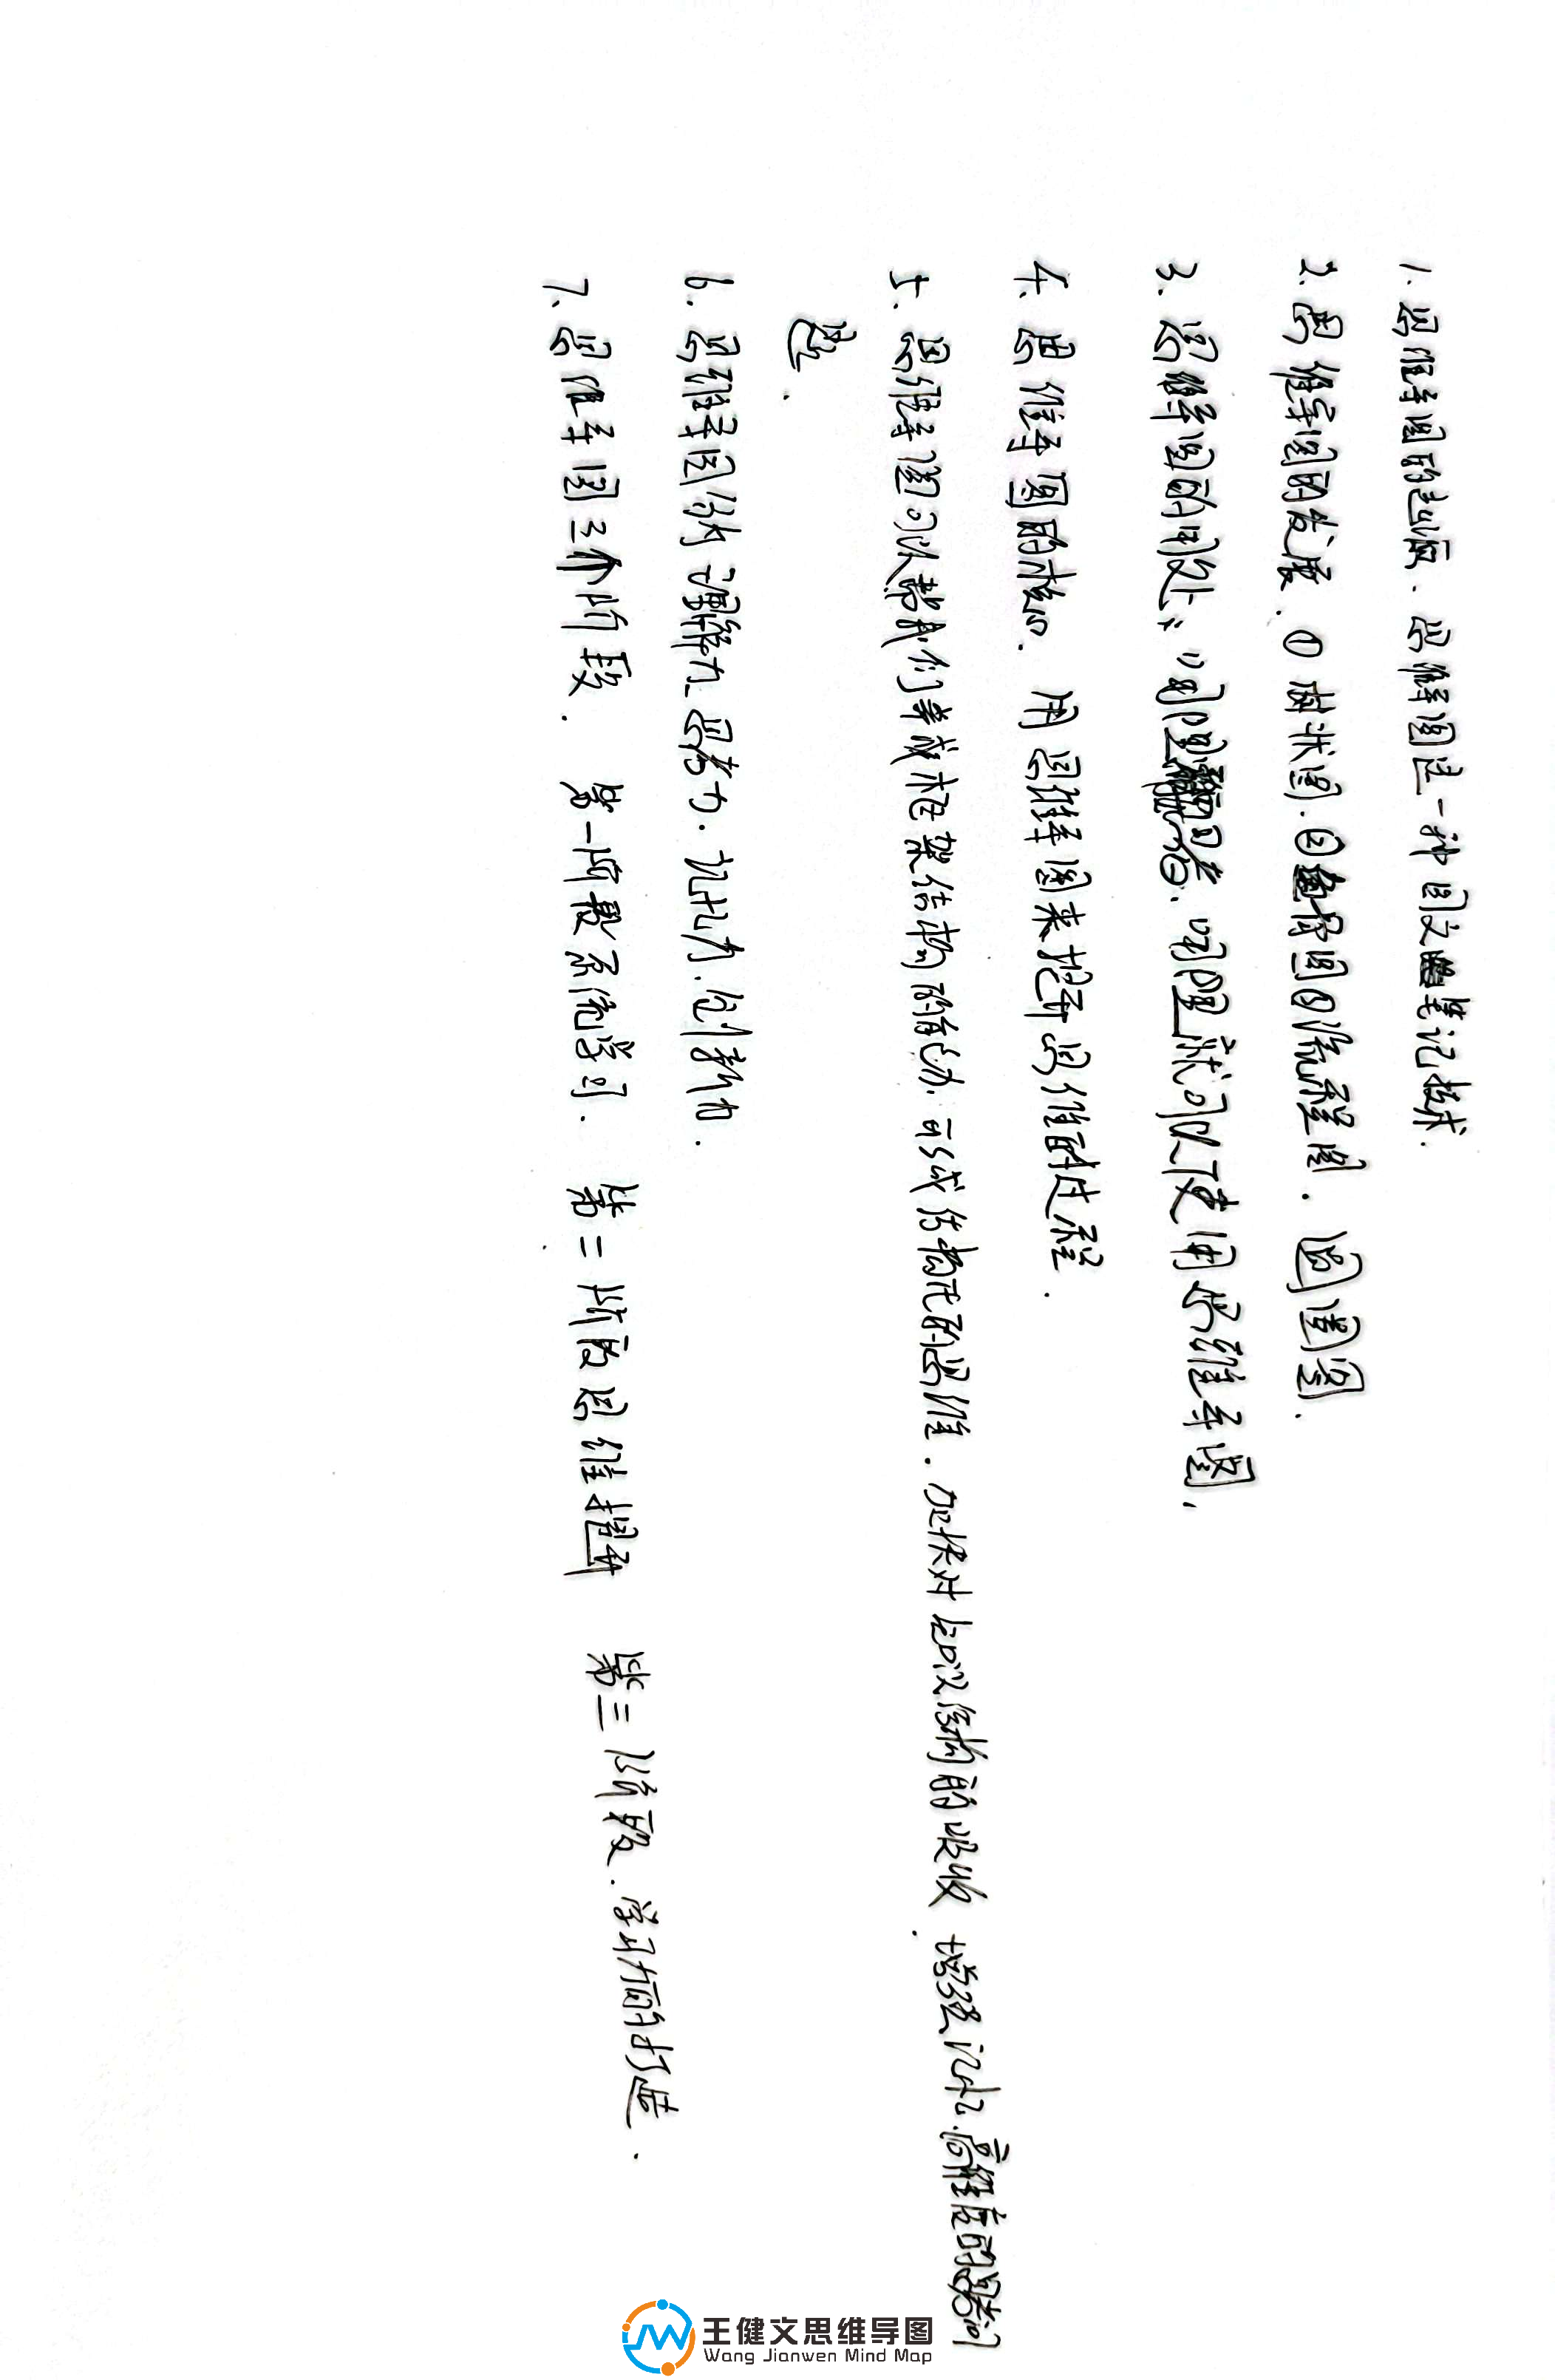 1、思维导图的起源、思维导图是一种图文笔记技术.
2、思维导图的发展、①树状图.②鱼骨图③流程图. 圆圈图.
3、思维导图的用处:“哪里需要思考、哪里就可以使用思维导图.
4、思维导图的核心、用思维导图来提升思维的过程.
5、思维导图可以帮我们养成框架结构的自动.形成结构化的思维.加快对知识结构的吸收.增强记忆.高维度的思考问
题.
6、思维导图的理解力.思考力.记忆力.创新力.
7、思维导图三个阶段. 第一阶段系统学习. 第二阶段思维提升 第三阶段.学习力的打造.
王健文思维导图
Wang Jianwen Mind Map